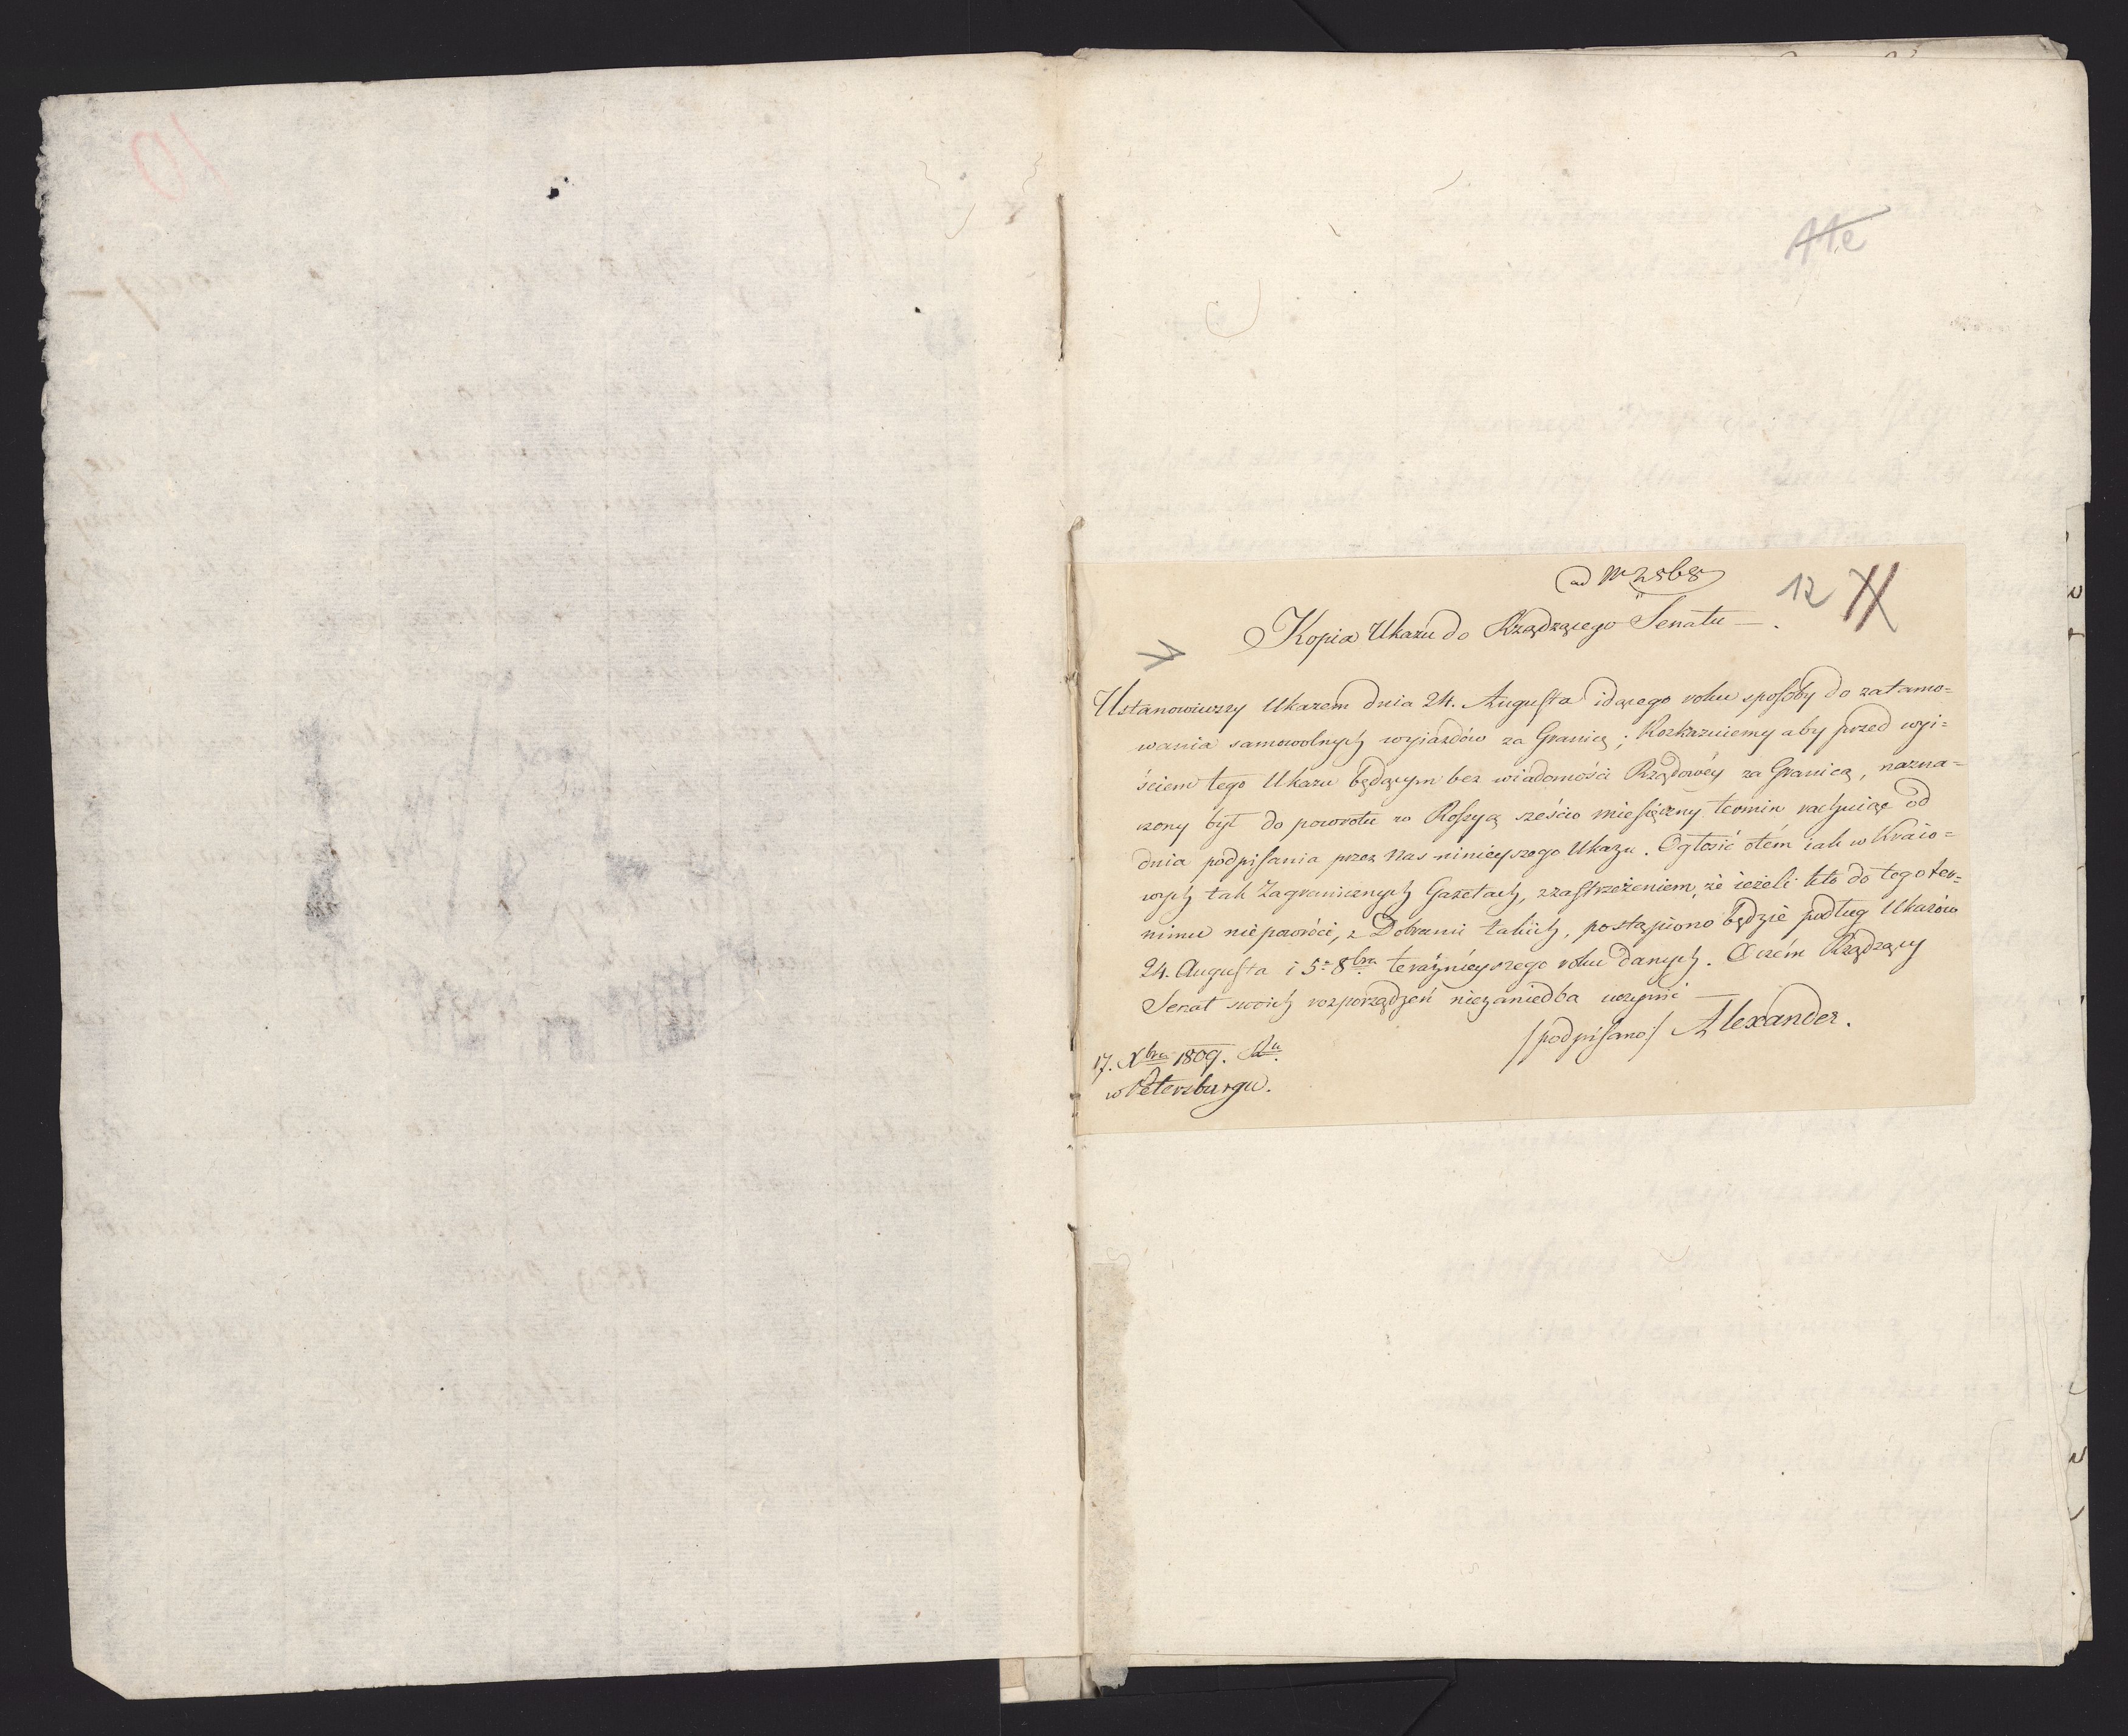 11e
ad Nr 2568
12
Kopia Ukazu do Rządzącego Senatu —.
Ustanowiwszy Ukazem dnia 24. Augusta idącego roku sposoby do zatamo=
wania samowolnych wyjazdów za Granicę; Rozkazuiemy aby przed wyi=
ściem tego Ukazu będącym bez wiadomości Rządowéy za Granicą, nazna=
czony był do powrotu w Rossyą sześcio miesięczny termin rachuiąc od
dnia podpisania przez Nas ninieyszego Ukazu. Ogłosić otém iak w Kraio=
wych tak Zagranicznych Gazetach, zzastrzeżeniem, że ieżeli kto do tego ter=
minu niepowróci, z Dobrami takich, postąpiono będzie podług Ukazów
24. Augusta i 5. 8bra teraźnieyszego roku danych. O czém Rządzący
Senat swoich rozporządzeń niezaniedba uczynić —
/podpisano/ Alexander.
17. Xbra 1809. Rku.
w Petersburgu.